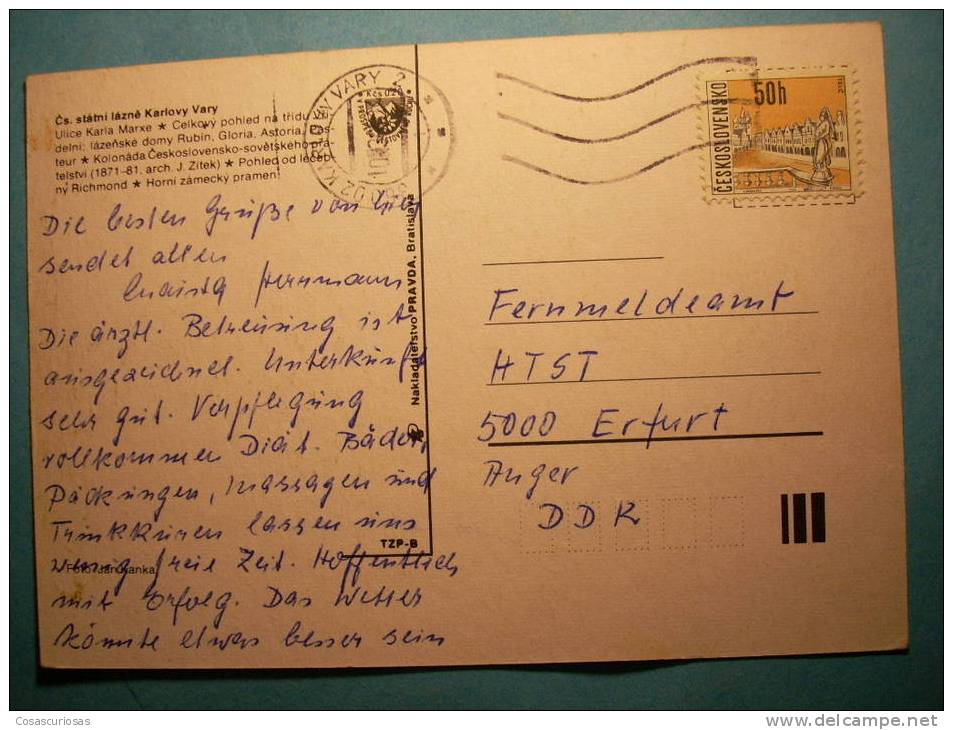 Čs. státní lázně Karlovy Vary
Ulice Karla Marxe ★ Celkový pohled na třídu
delní; lázeňské domy Rubín, Gloria, Astoria
teur ★ Kolonáda Československo-sovětského přá-
telství (1871–81, arch. J. Zítek) ★ Pohled od léčeb-
ny Richmond ★ Horní zámecký pramen
Die besten Grüße von hier
sendet allen
Herrmann
Die ärztl. Betreuung ist
ausgezeichnet. Unterkunft
sehr gut. Verpflegung
vollkommen Diät. Bäder,
Packungen, Massagen und
Trinkkuren lassen uns
wenig freie Zeit. Hoffentlich
mit Erfolg. Das Wetter
könnte etwas besser sein
Foto
TZP-B
Nakladatelství PRAVDA, Bratislava
VARY 2
ČESKOSLOVENSKO
50h
Fernmeldeamt
HTST
5000 Erfurt
Anger
DDR
Cosascuriosas
www.delcampe.net